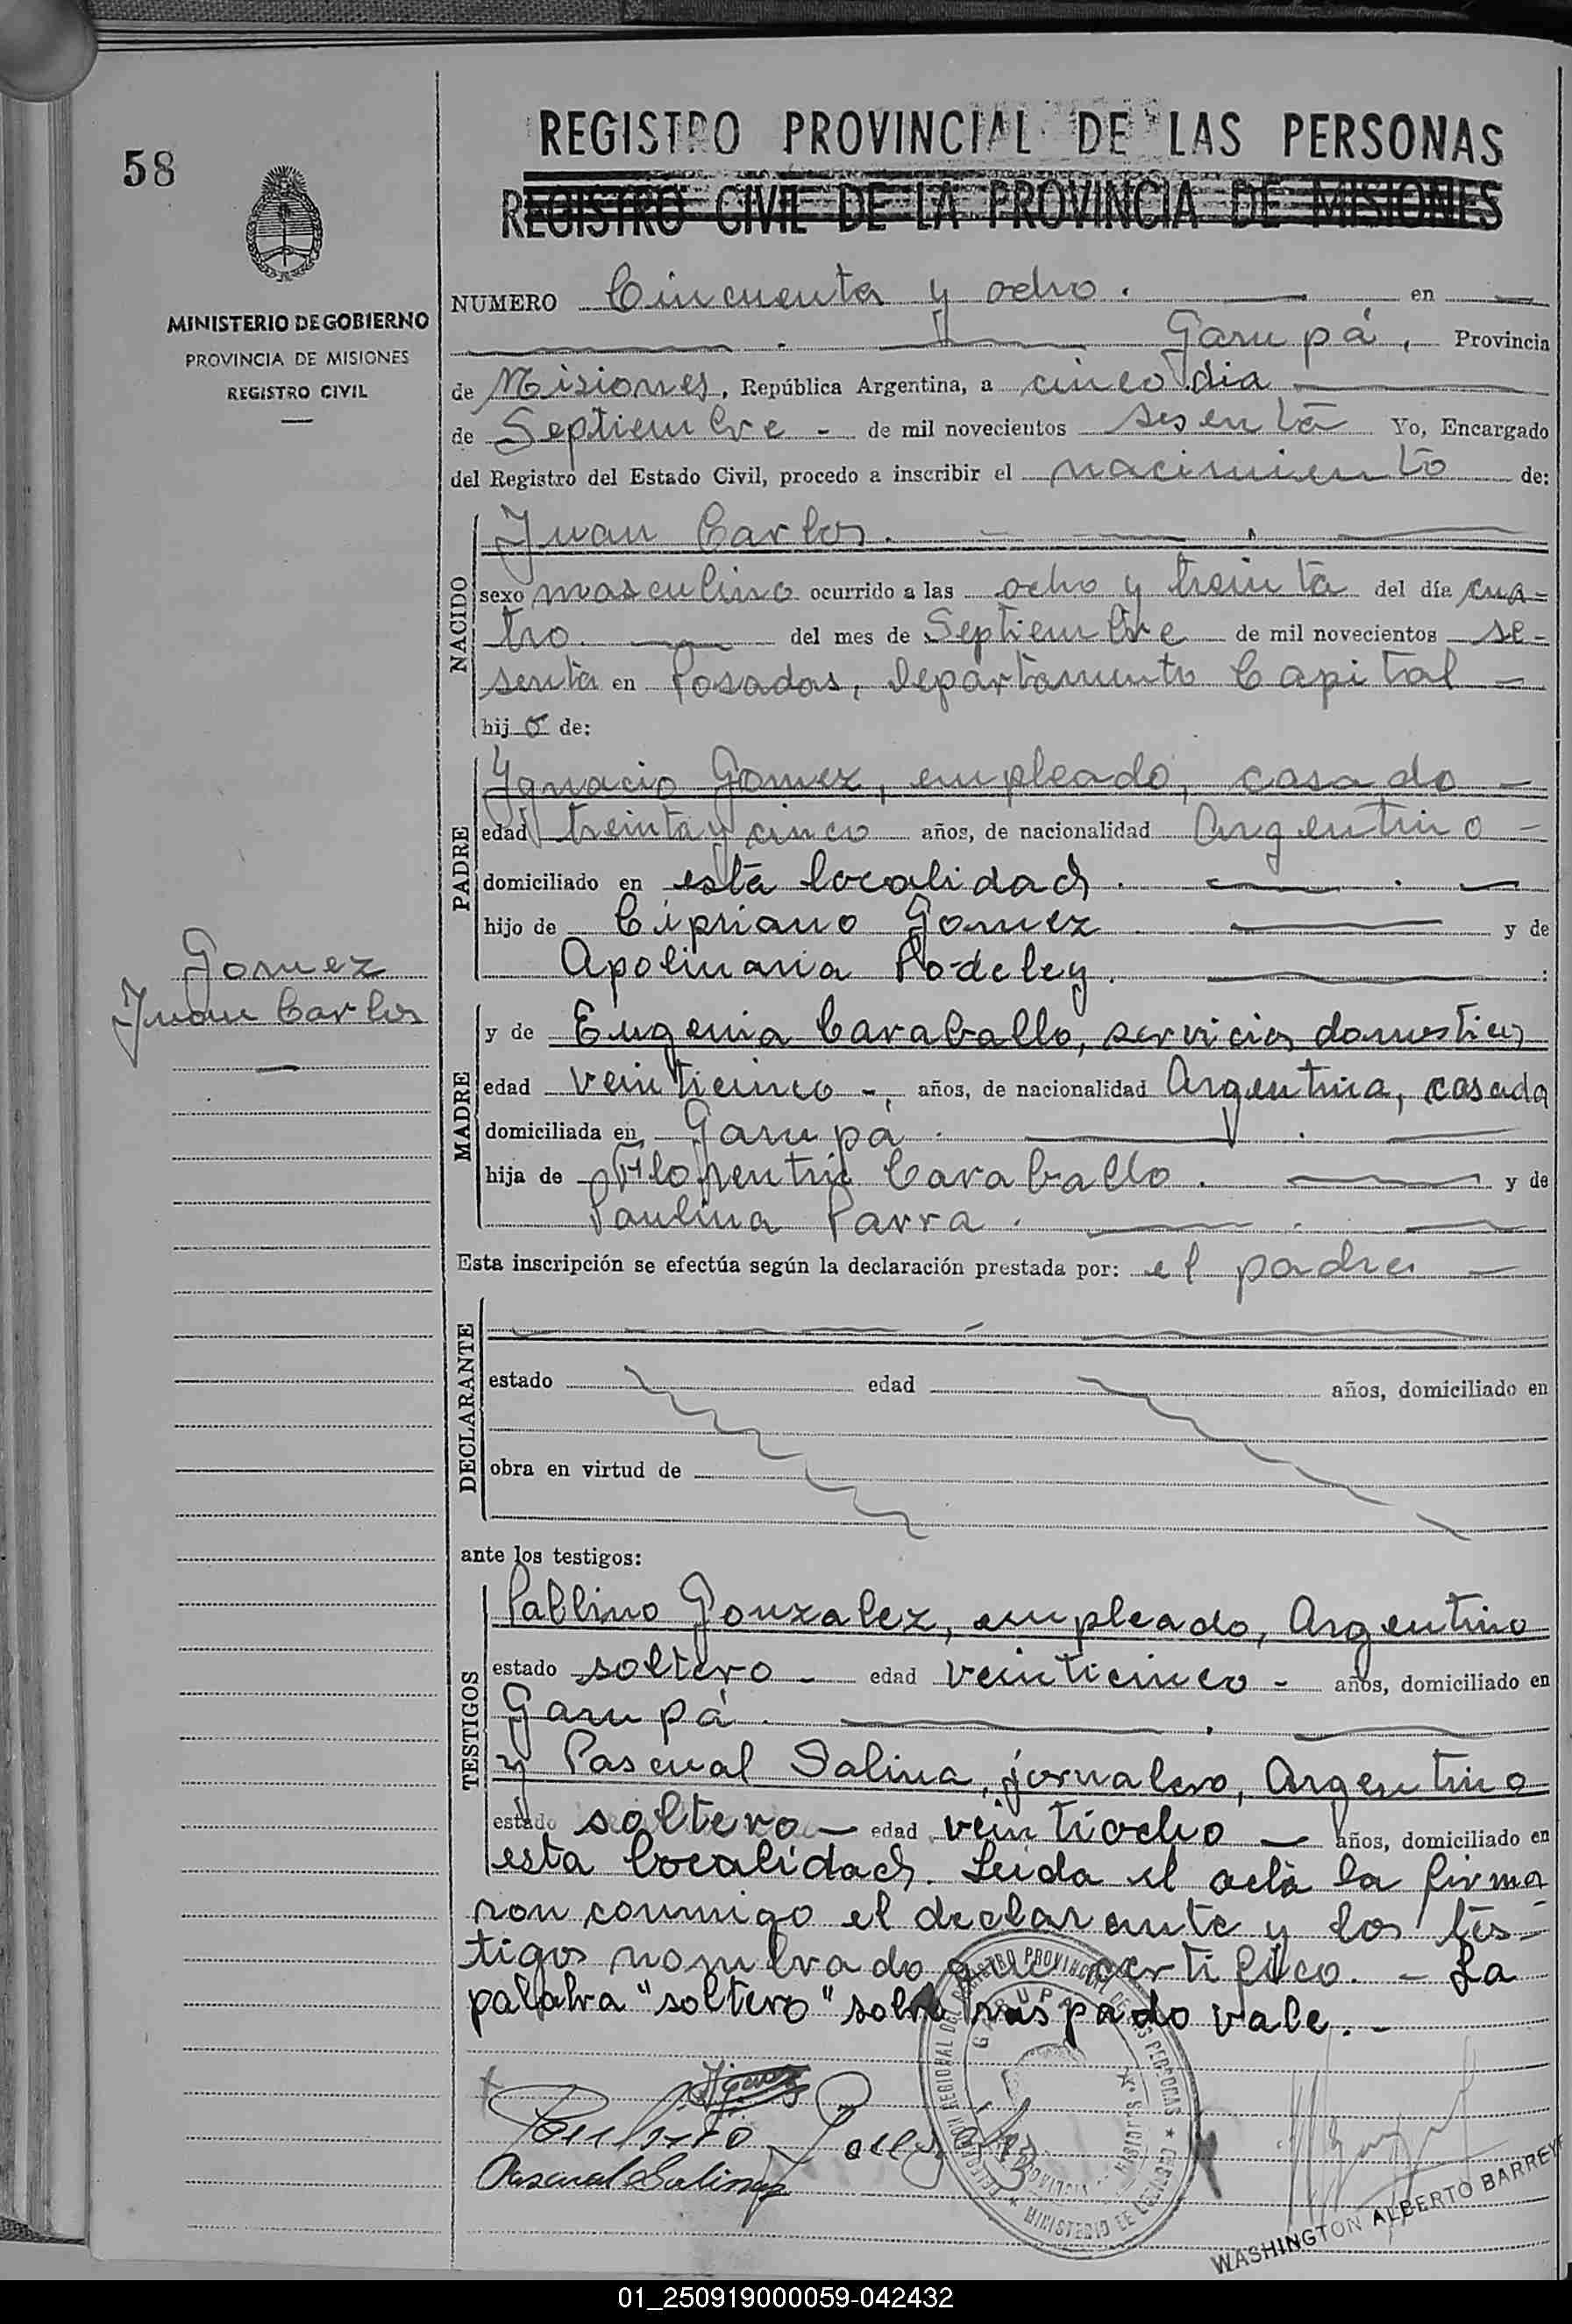 58
MINISTERIO DE GOBIERNO
PROVINCIA DE MISIONES
REGISTRO CIVIL
REGISTRO PROVINCIAL DE LAS PERSONAS
REGISTRO CIVIL DE LA PROVINCIA DE MISIONES
NUMERO Cincuenta y ocho. en
Garupá, Provincia
de Misiones, República Argentina, a cinco dia
de Septiembre - de mil novecientos sesenta Yo, Encargado
del Registro del Estado Civil, procedo a inscribir el nacimiento de:
NACIDO
Juan Carlos.
sexo masculino ocurrido a las ocho y treinta del día cua=
tro. del mes de Septiembre de mil novecientos se-
senta en Posadas, Departamento Capital -
hijo de:
PADRE
Ygnacio Gomez, empleado, casado -
edad treinta y cinco años, de nacionalidad Argentino -
domiciliado en esta localidad.
hijo de Cipriano Gomez y de
Apolinaria Podeley.
Gomez
Juan Carlos
MADRE
y de Eugenia Caraballo, servicios domesticos
edad veinticinco -, años, de nacionalidad Argentina, casada
domiciliada en Garupá.
hija de Florentin Caraballo. y de
Paulina Parra.
Esta inscripción se efectúa según la declaración prestada por: el padre -
DECLARANTE
estado edad años, domiciliado en
obra en virtud de
ante los testigos:
TESTIGOS
Pablino Gonzalez, empleado, Argentino
estado soltero - edad veinticinco - años, domiciliado en
Garupá.
y Pascual Salina, jornalero, Argentino
estado soltero - edad veintiocho - años, domiciliado en
esta localidad. Leida el acta la firma
ron conmigo el declarante y los tes=
tigos nombrado que certifico. - La
palabra "soltero" sobre raspado vale. -
Pascual Salinas
WASHINGTON ALBERTO BARREY
01_250919000059-042432